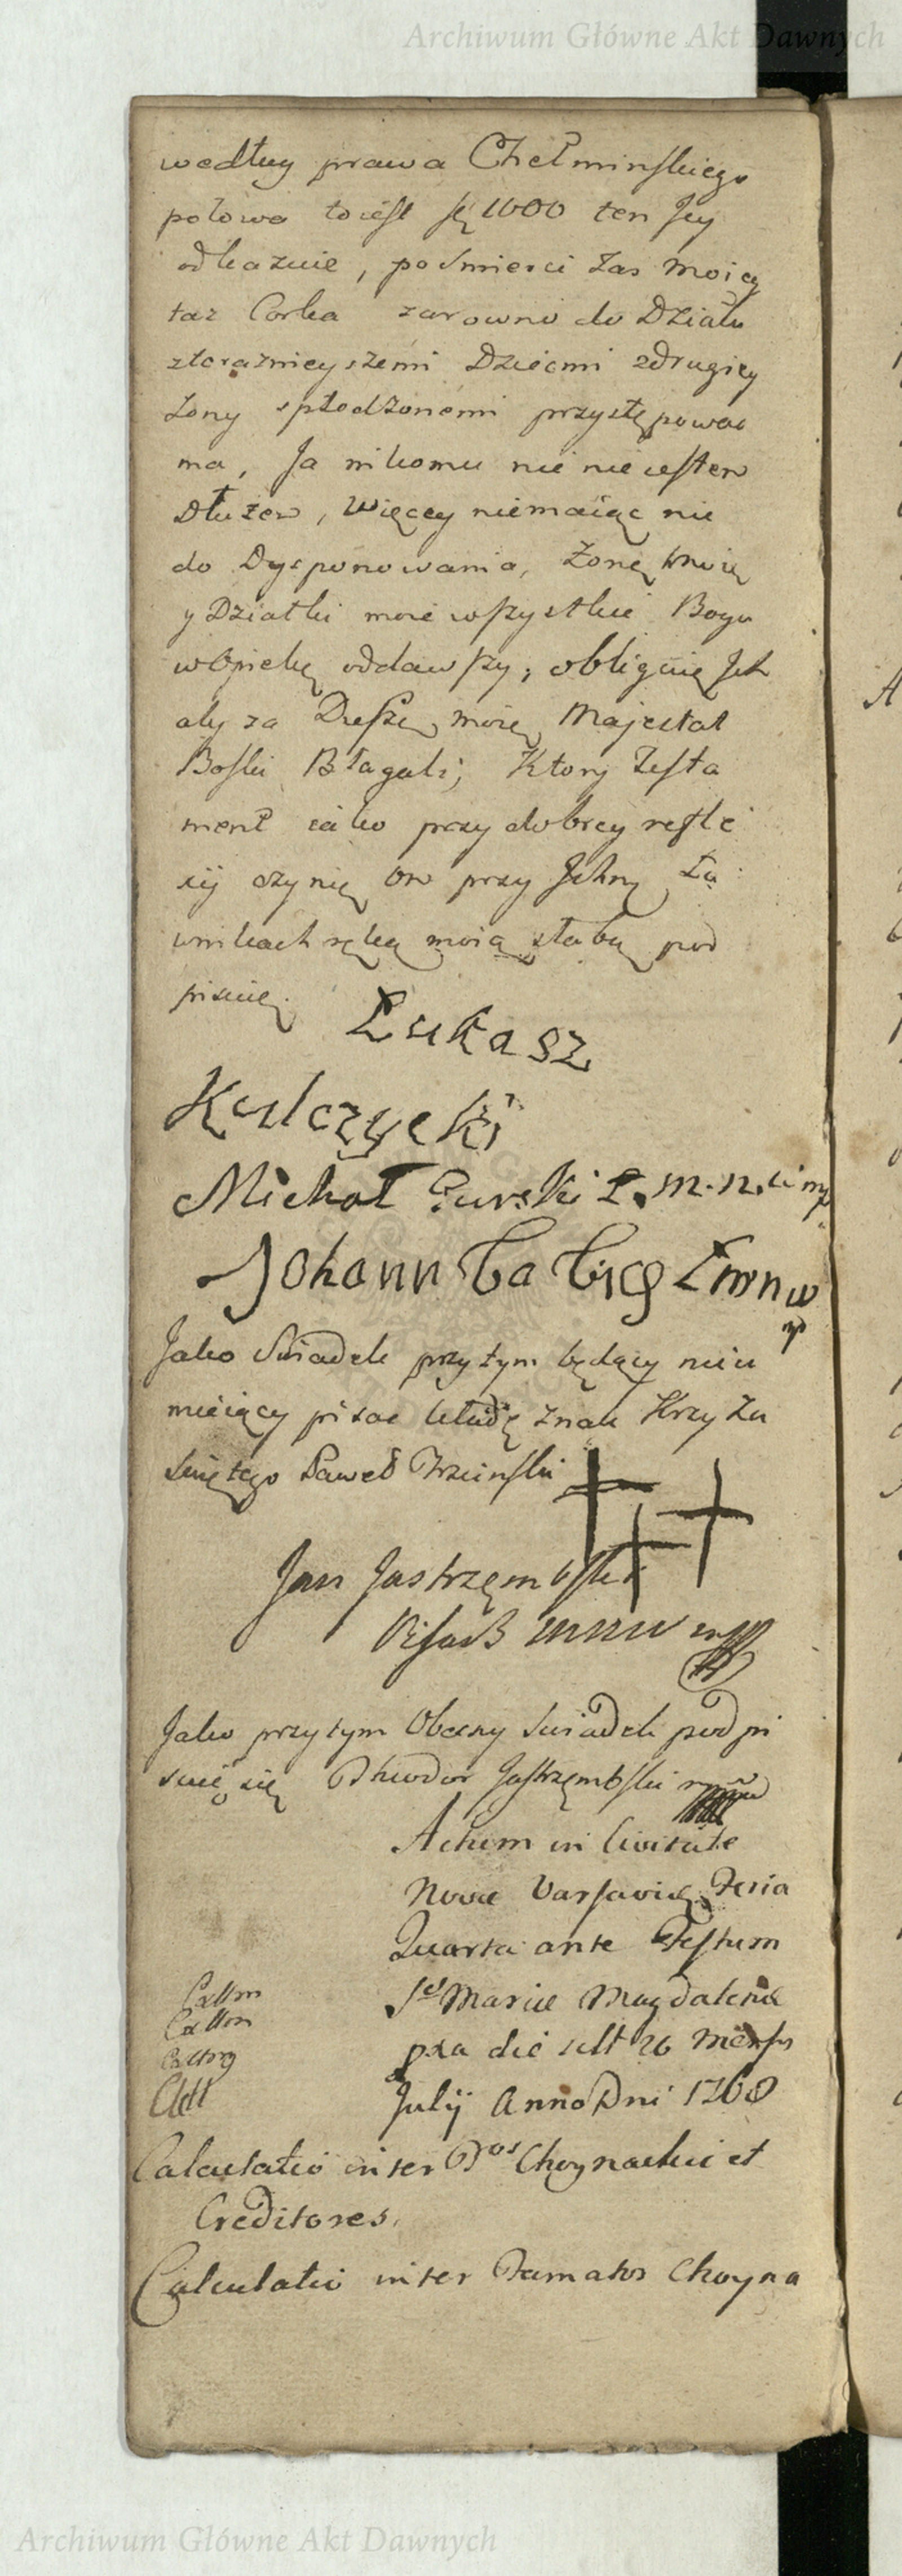 Archiwum Główne Akt Dawnych
według prawa Chełminskiego
połowa toiest 1000 ten Jey
odkazuie, po Smierci zas Moiey
taz Corka zarowno do Działu
zteraznieyszemi Dziecmi zdrugiey
Zony spłodzonemi przystępowac
ma, Ja nikomu nic nie iestem
Dłuzen, Więcey niemaiąc nic
do Dysponowania, Zonę moię
y Dziatki moie wszystkie Bogu
wOpiekę oddawszy, obliguię Ich
aby za Duszę moię Majestat
Boski Błagali; Ktory Testa
ment iako przy dobrey refle
xij czynię on przy Ichmć Ła
wnikach ręką moią słabą pod
pisuię.
Łukasz
Kulczycki
Michał Gurski Ł. m. n.
Johann
Jako Swiadek przytym będący nieu
mieiący pisac kładę znak Krzyza
Swiętego Paweł
Jan Jastrzęmbski
Pisarz
Jako przytym Obecny Swiadek podpi
suię się Theodor Jastrzęmbski
Actum in Civitate
Nova Varsavia Feria
Quarta ante Festum
Mariæ Magdalenæ
die 20 Mensis
Julij Anno Dni 1768
Calculatio inter Choynackie et
Creditores.
Calculatio inter Famatos Choyna
Archiwum Główne Akt Dawnych